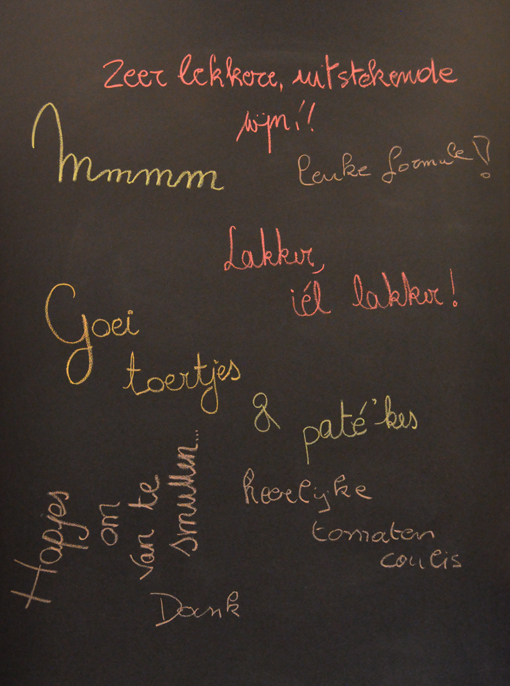 Zeer lekkere, uitstekende
wijn!!
Mmmmm
leuke formule!
Lakker,
iél lakker!
Goei
toertjes
& paté'kes
Hapjes
om
van te
smullen...
heerlijke
tomaten
coulis
Dank